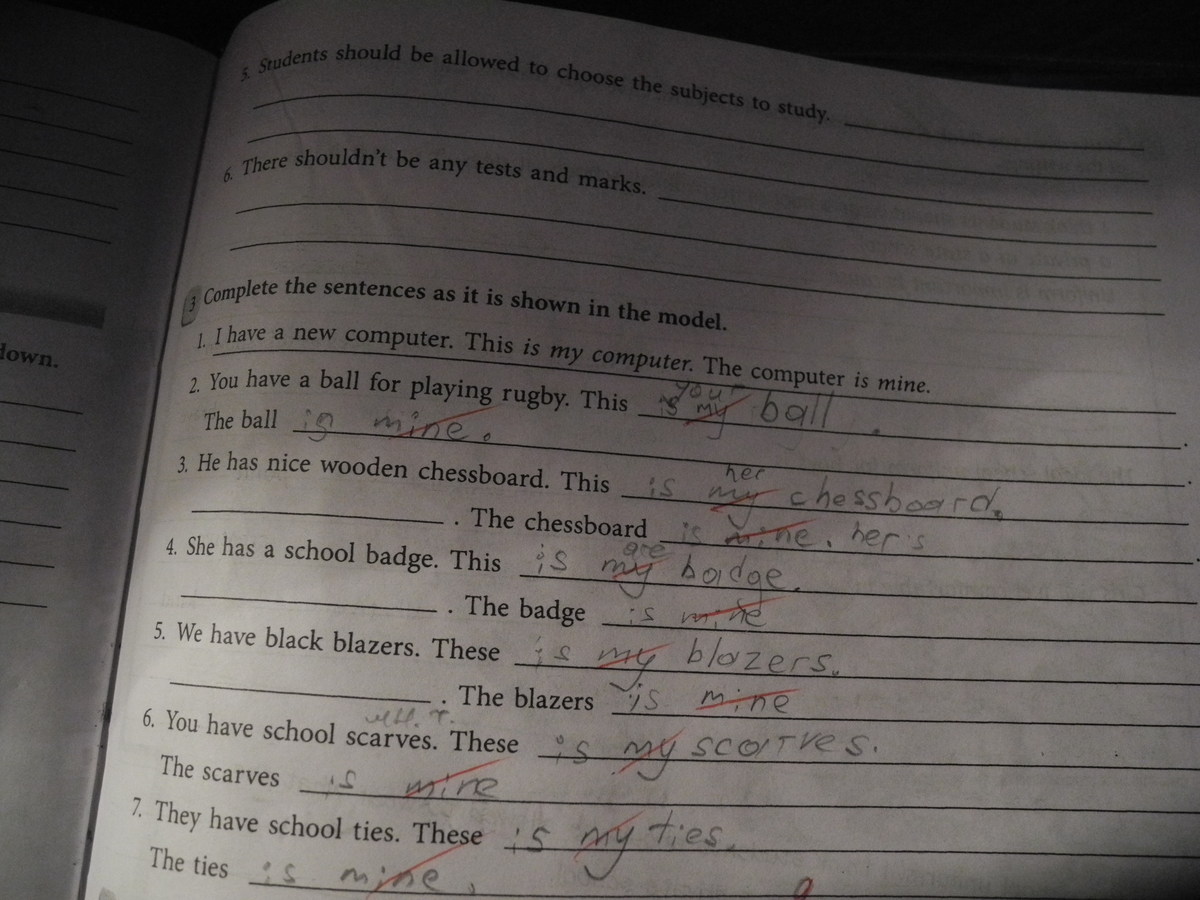 5. Students should be allowed to choose the subjects to study.
6. There shouldn't be any tests and marks.
3 Complete the sentences as it is shown in the model.
1. I have a new computer. This is my computer. The computer is mine.
your
2. You have a ball for playing rugby. This is my ball .
The ball is mine.
her
3. He has nice wooden chessboard. This is my chessboard.
. The chessboard is mine. her's
are
4. She has a school badge. This is my badge.
. The badge is mine
5. We have black blazers. These is my blazers.
. The blazers is mine
6. You have school scarves. These is my scarves.
The scarves is mine
7. They have school ties. These is my ties.
The ties is mine.
down.